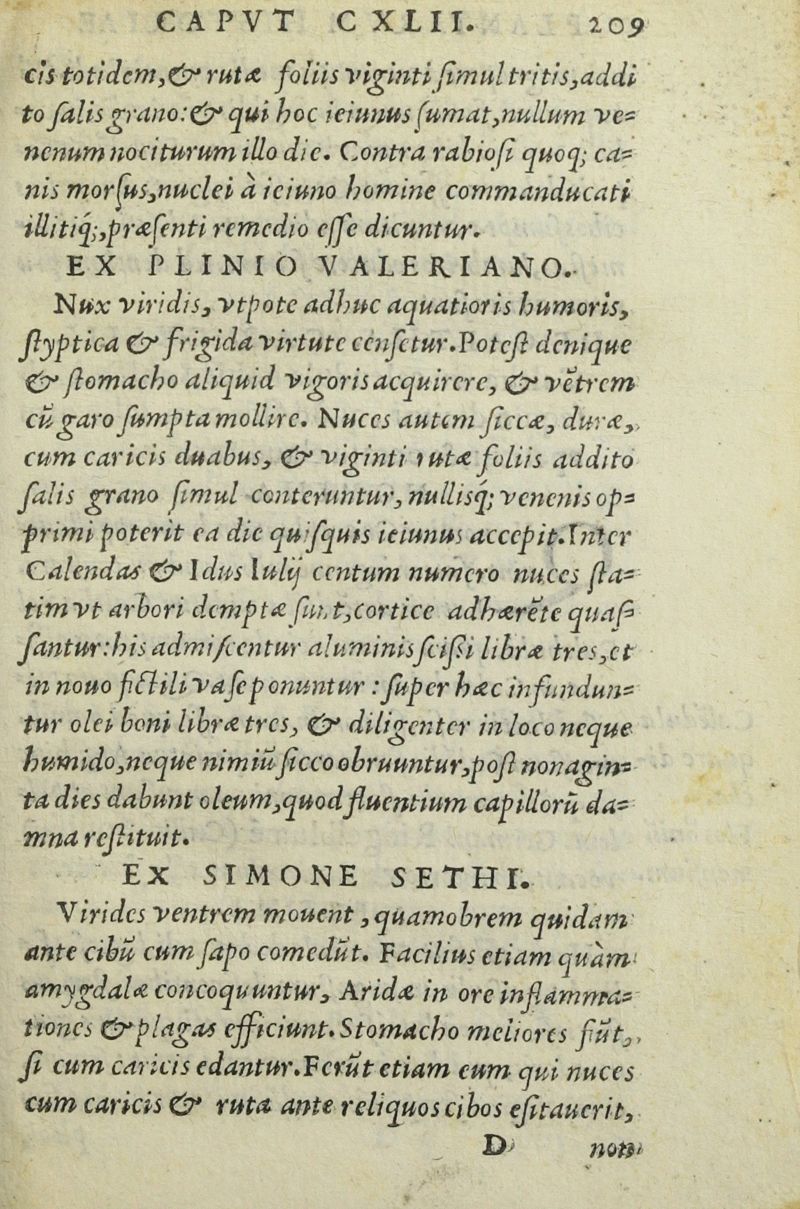 CAPVT CXLII. 209
cis totidem, & rutæ foliis viginti ſimul tritis, addi
to ſalis grano: & qui hoc ieiunus ſumat, nullum ve=
nenum nociturum illo die. Contra rabioſi quoq; ca=
nis morſus, nuclei à ieiuno homine commanducati
illitiq́;, præſenti remedio eſſe dicuntur.
EX PLINIO VALERIANO.
Nux viridis, vtpote adhuc aquatioris humoris,
ſtyptica & frigida virtute cenſetur. Poteſt denique
& ſtomacho aliquid vigoris acquirere, & vētrem
cū garo ſumpta mollire. Nuces autem ſiccæ, duræ,
cum caricis duabus, & viginti rutæ foliis addito
ſalis grano ſimul conteruntur, nullisq́; venenis op=
primi poterit ea die quiſquis ieiunus accepit. Inter
Calendas & Idus Iulij centum numero nuces ſta=
tim vt arbori demptæ ſunt, cortice adhærēte quaſ=
ſantur: his admiſcentur aluminis ſciſsi libræ tres, et
in nouo fictili vaſe ponuntur: ſuper hæc infundun=
tur olei boni libræ tres, & diligenter in loco neque
humido, neque nimiū ſicco obruuntur, poſt nonagin=
ta dies dabunt oleum, quod fluentium capillorū da=
mna reſtituit.
EX SIMONE SETHI.
Virides ventrem mouent, quamobrem quidam
ante cibū cum ſapo comedūt. Facilius etiam quàm
amygdalæ concoquuntur, Aridæ in ore inflamma=
tiones & plagas efficiunt. Stomacho meliores fiūt,
ſi cum caricis edantur. Ferūt etiam eum qui nuces
cum caricis & ruta ante reliquos cibos eſitauerit,
D non